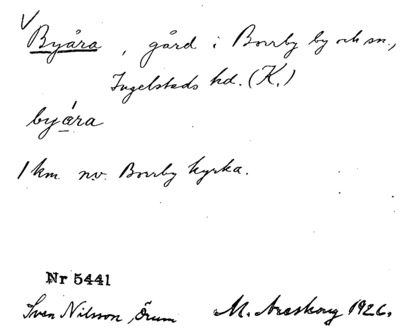 √
Byåra, gård i Borrby by och sn.,
Ingelstads hd. (K.)
byára
1 km. nv. Borrby kyrka.
Nr 5441
Sven Nilsson, Örum M. Areskoug 1926.